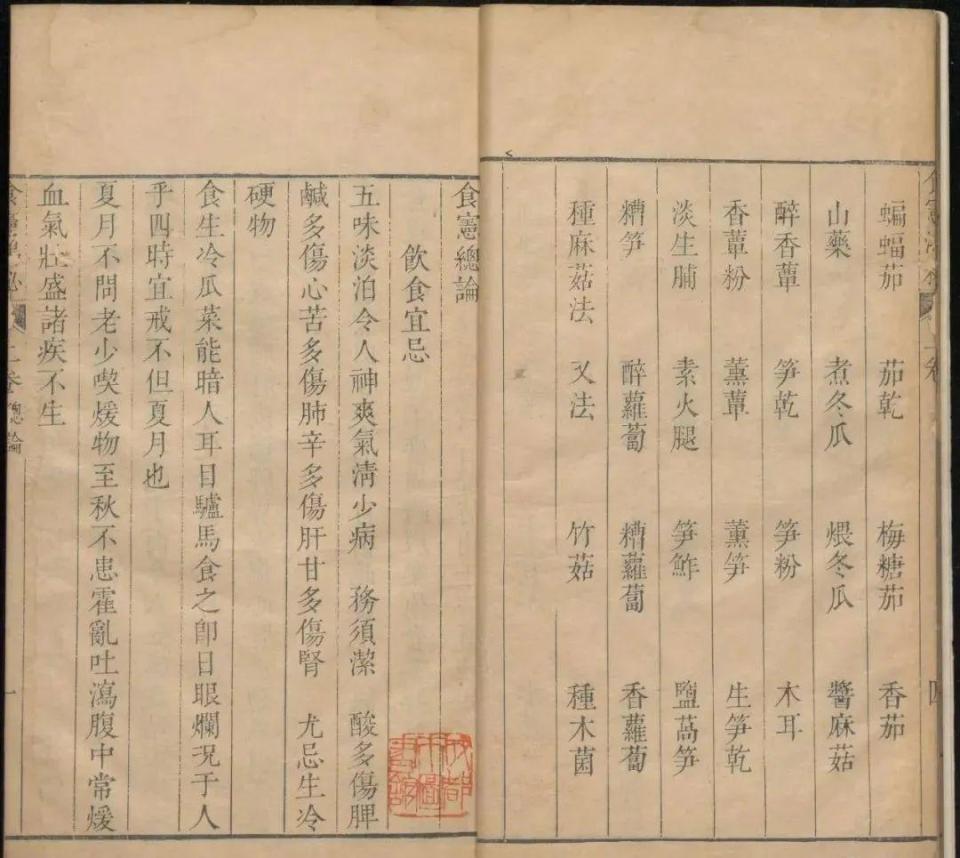 蝙蝠茄 茄乾 梅糖茄 香茄
山藥 煮冬瓜 煨冬瓜 醬麻菇
醉香蕈 笋乾 笋粉 木耳
香蕈粉 薰蕈 薰笋 生笋乾
淡生脯 素火腿 笋鮓 鹽萵笋
糟笋 醉蘿蔔 糟蘿蔔 香蘿蔔
種麻菇法 又法 竹菇 種木菌
食憲總論
飲食宜忌
五味淡泊令人神爽氣清少病 務須潔 酸多傷脾
鹹多傷心苦多傷肺辛多傷肝甘多傷腎 尤忌生冷
硬物
食生冷瓜菜能暗人耳目驢馬食之即日眼爛况于人
乎四時宜戒不但夏月也
夏月不問老少喫煖物至秋不患霍亂吐瀉腹中常煖
血氣壯盛諸疾不生
上卷總論 一
成都
市圖
書館